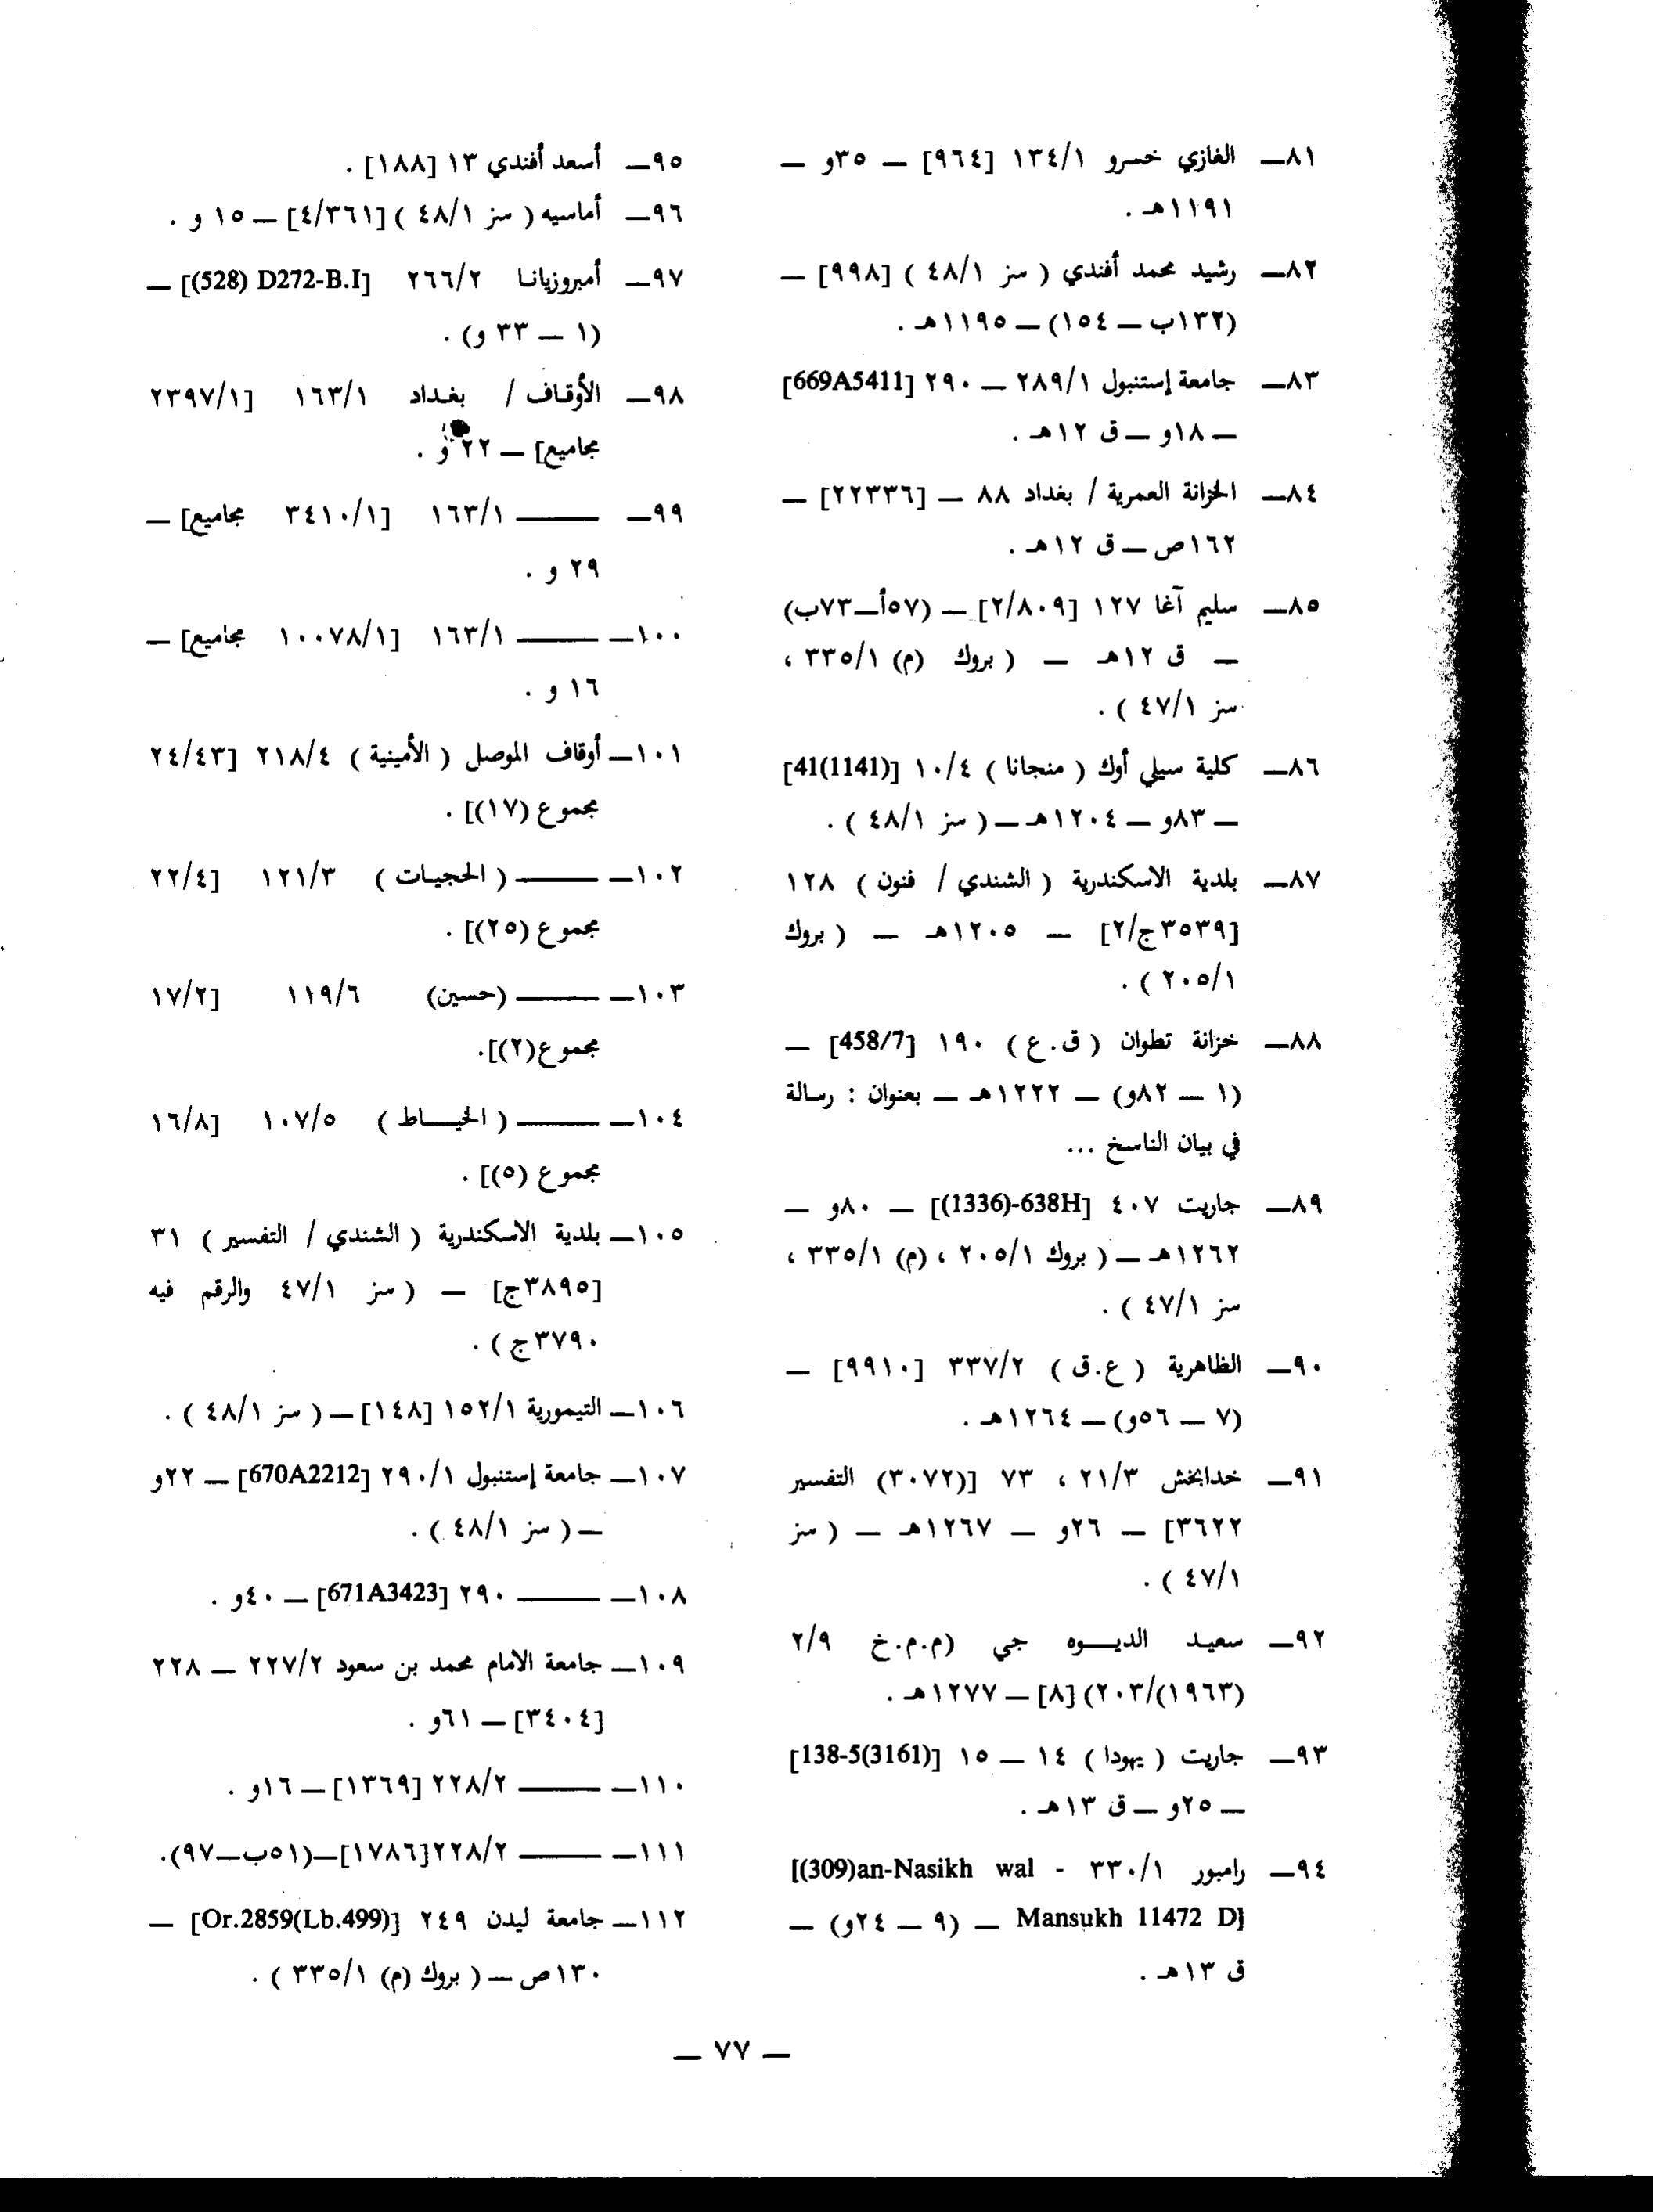 ٨١— الغازي خسرو ١٣٤/١ [٩٦٤] — ٣٥و —
١١٩١هـ .
٨٢— رشيد محمد أفندي ( سز ٤٨/١ ) [٩٩٨] —
(١٣٢ب — ١٥٤) — ١١٩٥هـ .
٨٣— جامعة إستنبول ٢٨٩/١ — ٢٩٠ [669A5411]
— ١٨و — ق ١٢هـ .
٨٤— الخزانة العمرية / بغداد ٨٨ — [٢٢٣٣٦] —
١٦٢ص — ق ١٢هـ .
٨٥— سليم آغا ١٢٧ [٢/٨٠٩] — (٥٧أ—٧٣ب)
— ق ١٢هـ — ( بروك (م) ٣٣٥/١ ،
سز ٤٧/١ ) .
٨٦— كلية سيلي أوك ( منجانا ) ١٠/٤ [41(1141)]
— ٨٣و — ١٢٠٤هـ — ( سز ٤٨/١ ) .
٨٧— بلدية الاسكندرية ( الشندي / فنون ) ١٢٨
[٣٥٣٩ج/٢] — ١٢٠٥هـ — ( بروك
٢٠٥/١ ) .
٨٨— خزانة تطوان ( ق.ع ) ١٩٠ [458/7] —
(١ — ٨٢و) — ١٢٢٢هـ — بعنوان : رسالة
في بيان الناسخ ...
٨٩— جاريت ٤٠٧ [638H-(1336)] — ٨٠و —
١٢٦٢هـ — ( بروك ٢٠٥/١ ، (م) ٣٣٥/١ ،
سز ٤٧/١ ) .
٩٠— الظاهرية ( ع.ق ) ٣٣٧/٢ [٩٩١٠] —
(٧ — ٥٦و) — ١٢٦٤هـ .
٩١— خدابخش ٢١/٣ ، ٧٣ [(٣٠٧٢) التفسير
٣٦٢٢] — ٢٦و — ١٢٦٧هـ — ( سز
٤٧/١ ) .
٩٢— سعيد الديــوه جي (م.م.خ ٢/٩
(١٩٦٣)/٢٠٣) [٨] — ١٢٧٧هـ .
٩٣— جاريت ( يهودا ) ١٤ — ١٥ [138-5(3161)]
— ٢٥و — ق ١٣هـ .
٩٤— رامبور ٣٣٠/١ - [(309)an-Nasikh wal
Mansukh 11472 D] — (٩ — ٢٤و) —
ق ١٣هـ .
٩٥— أسعد أفندي ١٣ [١٨٨] .
٩٦— أماسيه ( سز ٤٨/١ ) [٤/٣٦١] — ١٥ و .
٩٧— أمبروزيانا ٢٦٦/٢ [(528) D272-B.I] —
(١ — ٣٣ و) .
٩٨— الأوقاف / بغداد ١٦٣/١ [٢٣٩٧/١
مجاميع] — ٢٢ و .
٩٩— ——— ١٦٣/١ [٣٤١٠/١ مجاميع] —
٢٩ و .
١٠٠— ——— ١٦٣/١ [١٠٠٧٨/١ مجاميع] —
١٦ و .
١٠١— أوقاف الموصل ( الأمينية ) ٢١٨/٤ [٢٤/٤٣
مجموع (١٧)] .
١٠٢— ——— ( الحجيات ) ١٢١/٣ [٢٢/٤
مجموع (٢٥)] .
١٠٣— ——— (حسين) ١١٩/٦ [١٧/٢
مجموع(٢)].
١٠٤— ——— ( الخيــاط ) ١٠٧/٥ [١٦/٨
مجموع (٥)] .
١٠٥— بلدية الاسكندرية ( الشندي / التفسير ) ٣١
[٣٨٩٥ج] — ( سز ٤٧/١ والرقم فيه
٣٧٩٠ج ) .
١٠٦— التيمورية ١٥٢/١ [١٤٨] — ( سز ٤٨/١ ) .
١٠٧— جامعة إستنبول ٢٩٠/١ [670A2212] — ٢٢و
— ( سز ٤٨/١ ) .
١٠٨— ——— ٢٩٠ [671A3423] — ٤٠و .
١٠٩— جامعة الامام محمد بن سعود ٢٢٧/٢ — ٢٢٨
[٣٤٠٤] — ٦١و .
١١٠— ——— ٢٢٨/٢ [١٣٦٩] — ١٦و .
١١١— ——— ٢٢٨/٢[١٧٨٦]—(٥١ب—٩٧).
١١٢— جامعة ليدن ٢٤٩ [Or.2859(Lb.499)] —
١٣٠ص — ( بروك (م) ٣٣٥/١ ) .
— ٧٧ —